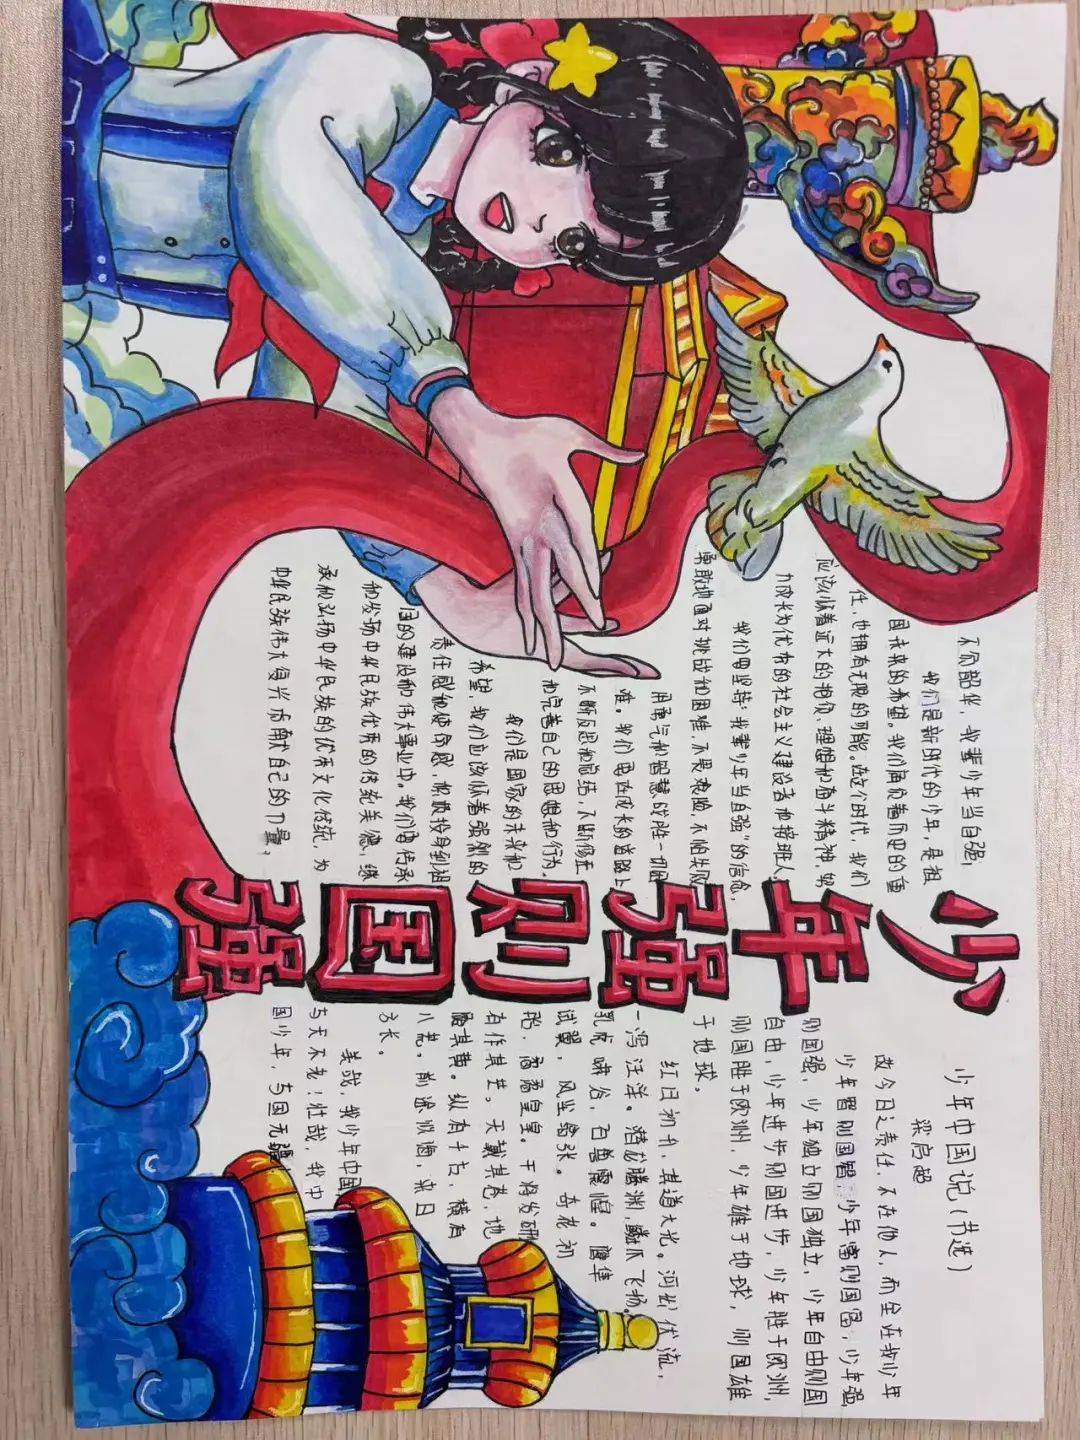 不负韶华，我辈少年当自强；
我们是新时代的少年，是祖
国未来的希望。我们肩负着历史的重
任，也拥有无限的可能。在这个时代，我们
应该怀着远大的抱负、理想和奋斗精神，努
力成长为优秀的社会主义建设者和接班人。
我们要坚持“我辈少年当自强”的信念，
勇敢地面对挑战和困难，不畏艰险，不怕失败
用勇气和智慧战胜一切困
难。我们要在成长的道路上
不断反思和总结，不断修正
和完善自己的思想和行为。
我们是国家的未来和
希望，我们应该怀着强烈的
责任感和使命感，积极投身到祖
国的建设和伟大事业中。我们要传承
和发扬中华民族优秀的传统美德，继
承和弘扬中华民族的优秀文化传统，为
中华民族伟大复兴贡献自己的力量，
少年强则国强
少年中国说（节选）
梁启超
故今日之责任，不在他人，而全在我少年
少年智则国智，少年富则国富；少年强
则国强，少年独立则国独立，少年自由则国
自由，少年进步则国进步，少年胜于欧洲，
则国胜于欧洲，少年雄于地球，则国雄
于地球。
红日初升，其道大光。河出伏流，
一泻汪洋。潜龙腾渊，鳞爪飞扬。
乳虎啸谷，百兽震惶。鹰隼
试翼，风尘翕张。奇花初
胎，矞矞皇皇。干将发硎
有作其芒。天戴其苍，地
履其黄。纵有千古，横有
八荒，前途似海，来日
方长。
美哉，我少年中国
与天不老！壮哉，我中
国少年，与国无疆